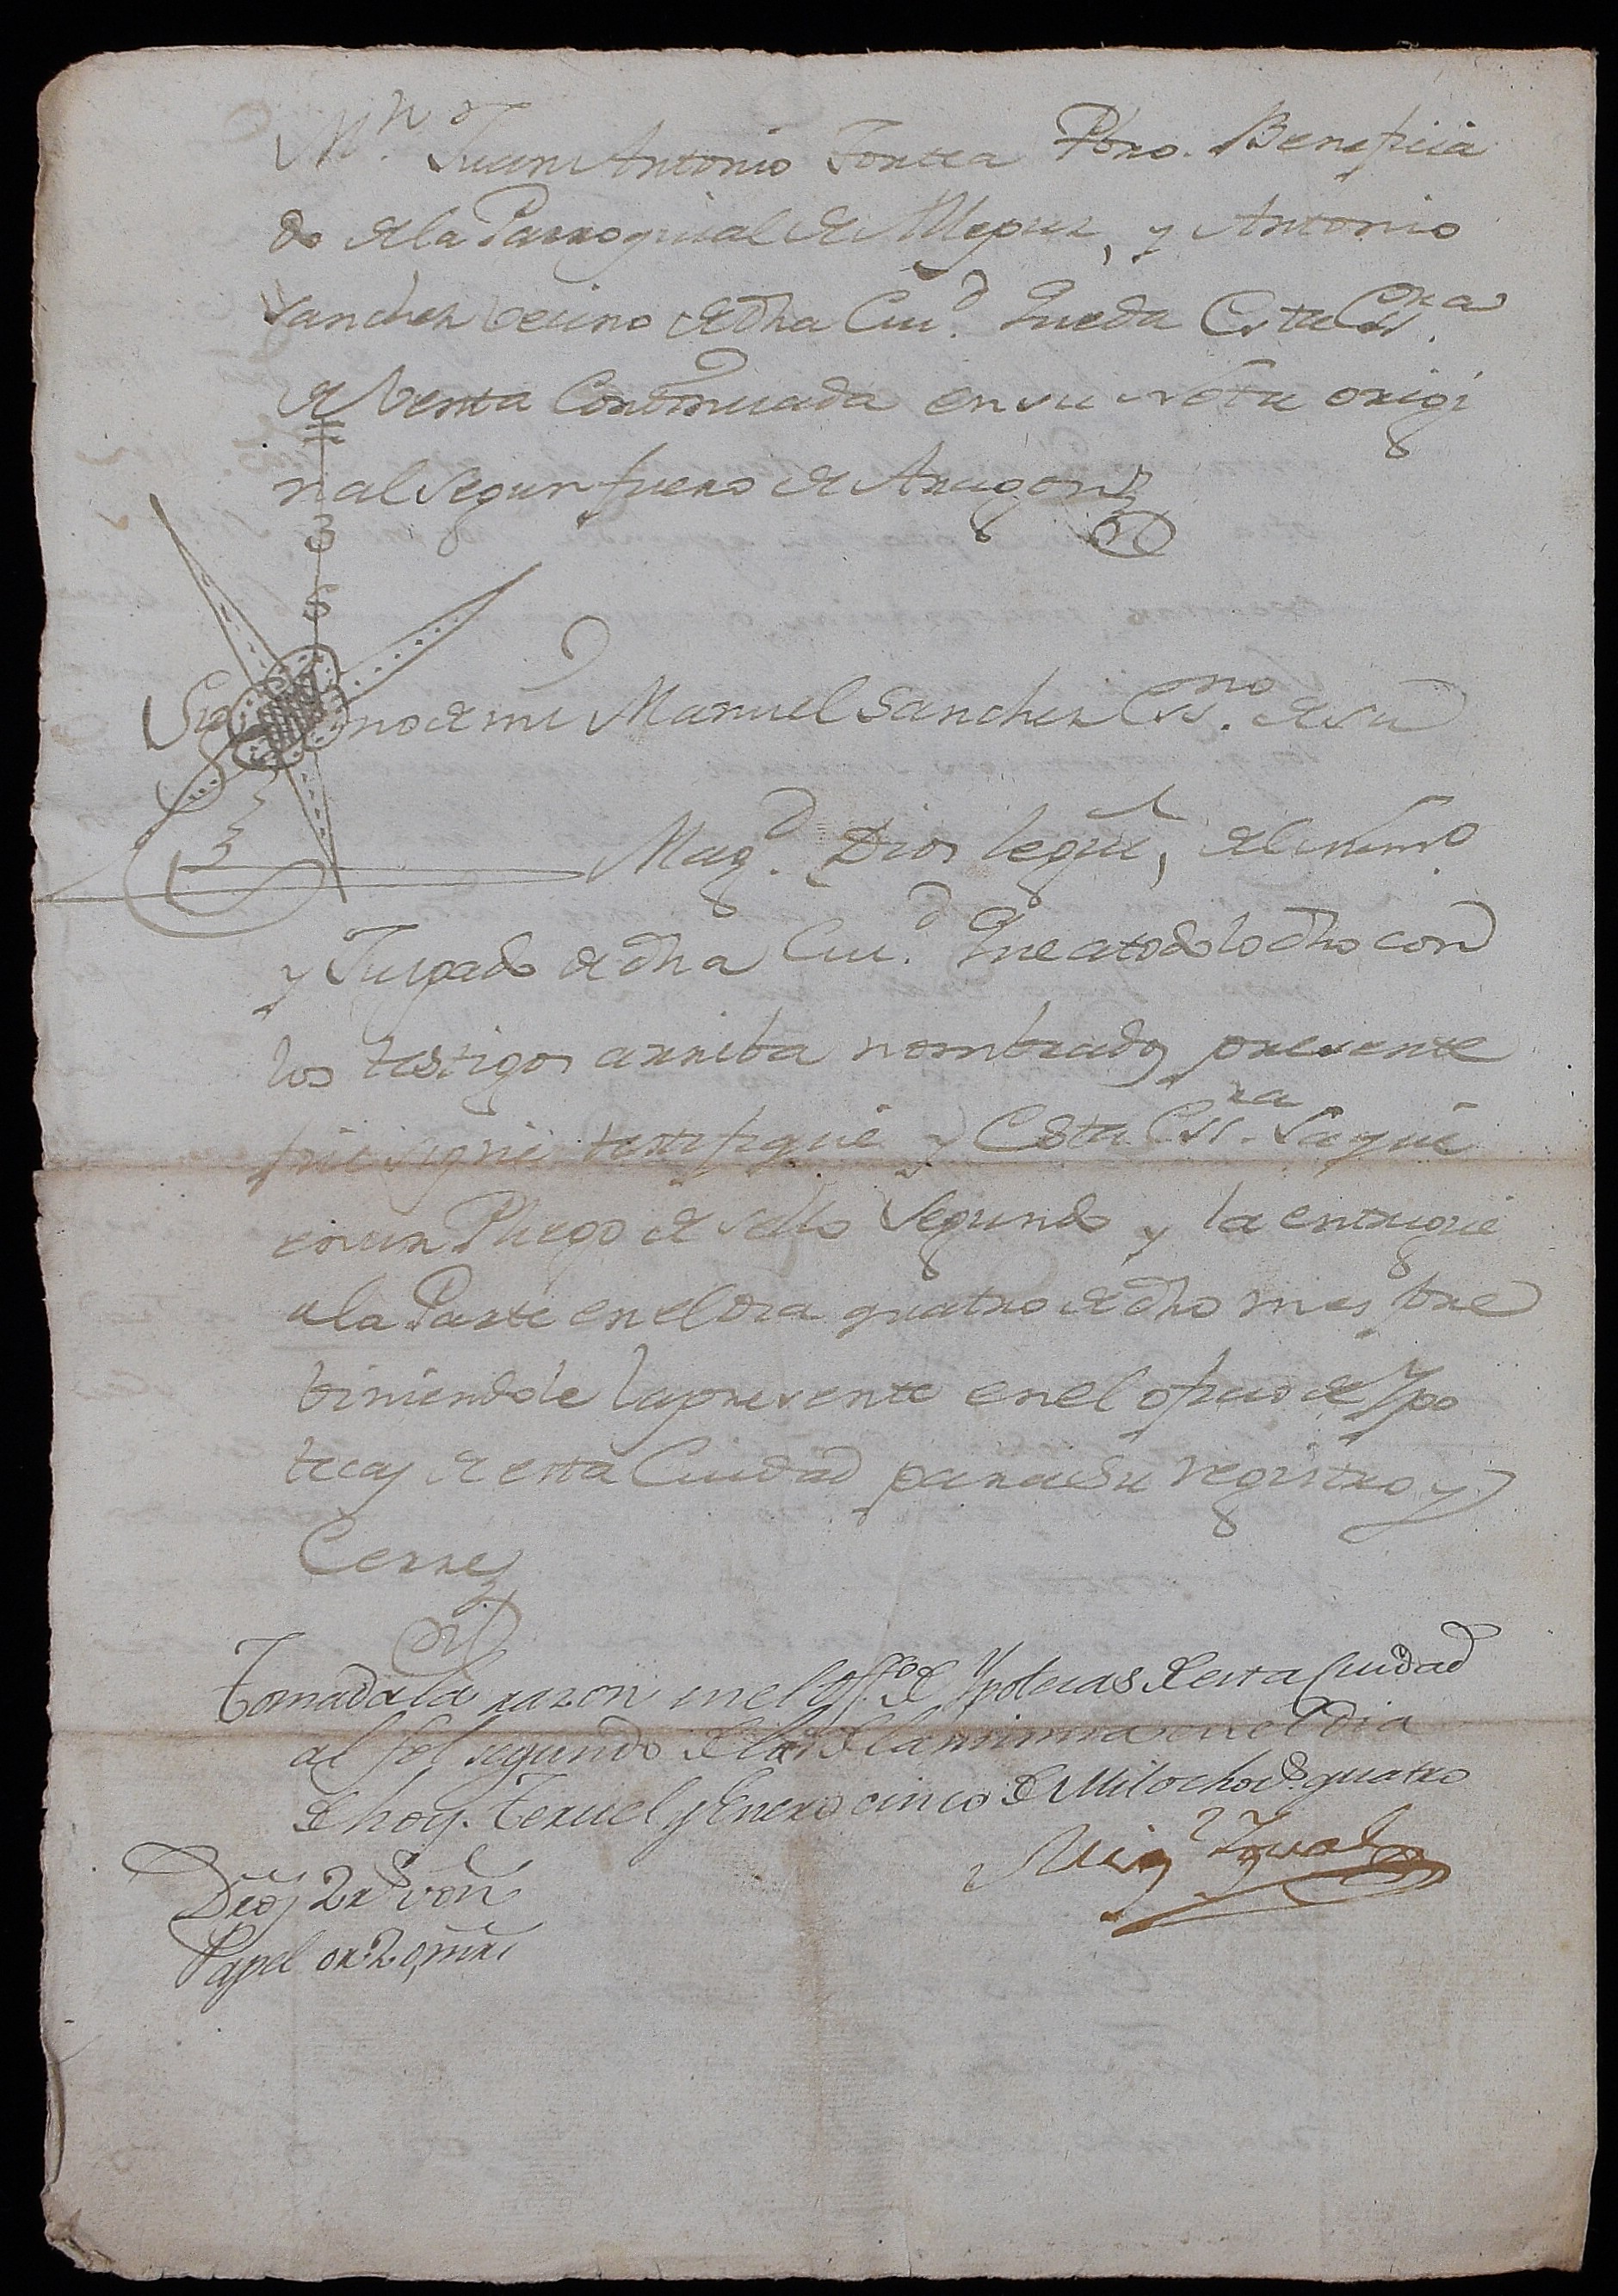 Mn. Juan Antonio Fortea Pbro. Beneficia
do de la Parroquial de Alepuz, y Antonio
Sanchez vecino de dha Ciud. Queda Esta Essra.
de Venta Continuada en su Nota origi
nal segun fuero de Aragon
Sig no de mi Manuel Sanchez Essno. de su
Magd. Dios le gûe, del numo
y Juzgado de dha Ciud. Que a todo lo dho con
los testigos arriba nombrados presente
fui signé testifiqué y Esta Essra. Saqué
en un Pliego de sello Segundo y la entregué
a la Parte en el dia quatro de dho mes pre
biniendole la presente en el oficio de Ypo
tecas de esta Ciudad para su registro y
Cerre
Tomada la razon en el Offo. de Ypotecas de esta Ciudad
al fol segundo de las de la misma en el dia
de hoy. Teruel y Enero cinco de Mil ochocs. quatro
Migl Igual
Dros 2 rs von
Papel 0 r 20 mrs